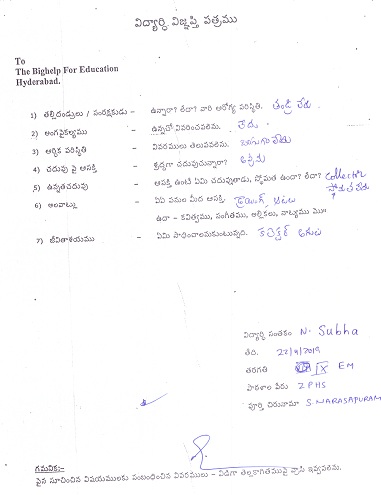 విద్యార్థి విజ్ఞప్తి పత్రము
To
The Bighelp For Education
Hyderabad.
1) తల్లిదండ్రులు / సంరక్షకుడు - ఉన్నారా? లేదా? వారి ఆరోగ్య పరిస్థితి. తండ్రి లేడు
2) అంగవైకల్యము - ఉన్నచో వివరించవలెను. లేదు.
3) ఆర్థిక పరిస్థితి - వివరములు తెలుపవలెను. బాగాలేదు
4) చదువు పై ఆసక్తి - శ్రద్ధగా చదువుచున్నారా?
5) ఉన్నతచదువు - ఆసక్తి ఉంటే ఏమి చదువుతాడు, స్థోమత ఉందా? లేదా? Collector స్తోమత లేదు
6) అలవాట్లు - ఏఏ పనుల మీద ఆసక్తి. డ్రాయింగ్, ఆటలు
ఉదా - కవిత్వము, సంగీతము, అల్లికలు, నాట్యము మొ॥
7) జీవితాశయము - ఏమి సాధించాలనుకుంటున్నది. కలెక్టర్ అగుట
విద్యార్థి సంతకం N. Subha
తేది. 22/9/2019
తరగతి IX EM
పాఠశాల పేరు ZPHS
పూర్తి చిరునామా S.NARASAPURAM
గమనిక:-
పైన సూచించిన విషయములకు సంబంధించిన వివరములు - విడిగా తెల్లకాగితముపై వ్రాసి ఇవ్వవలెను.